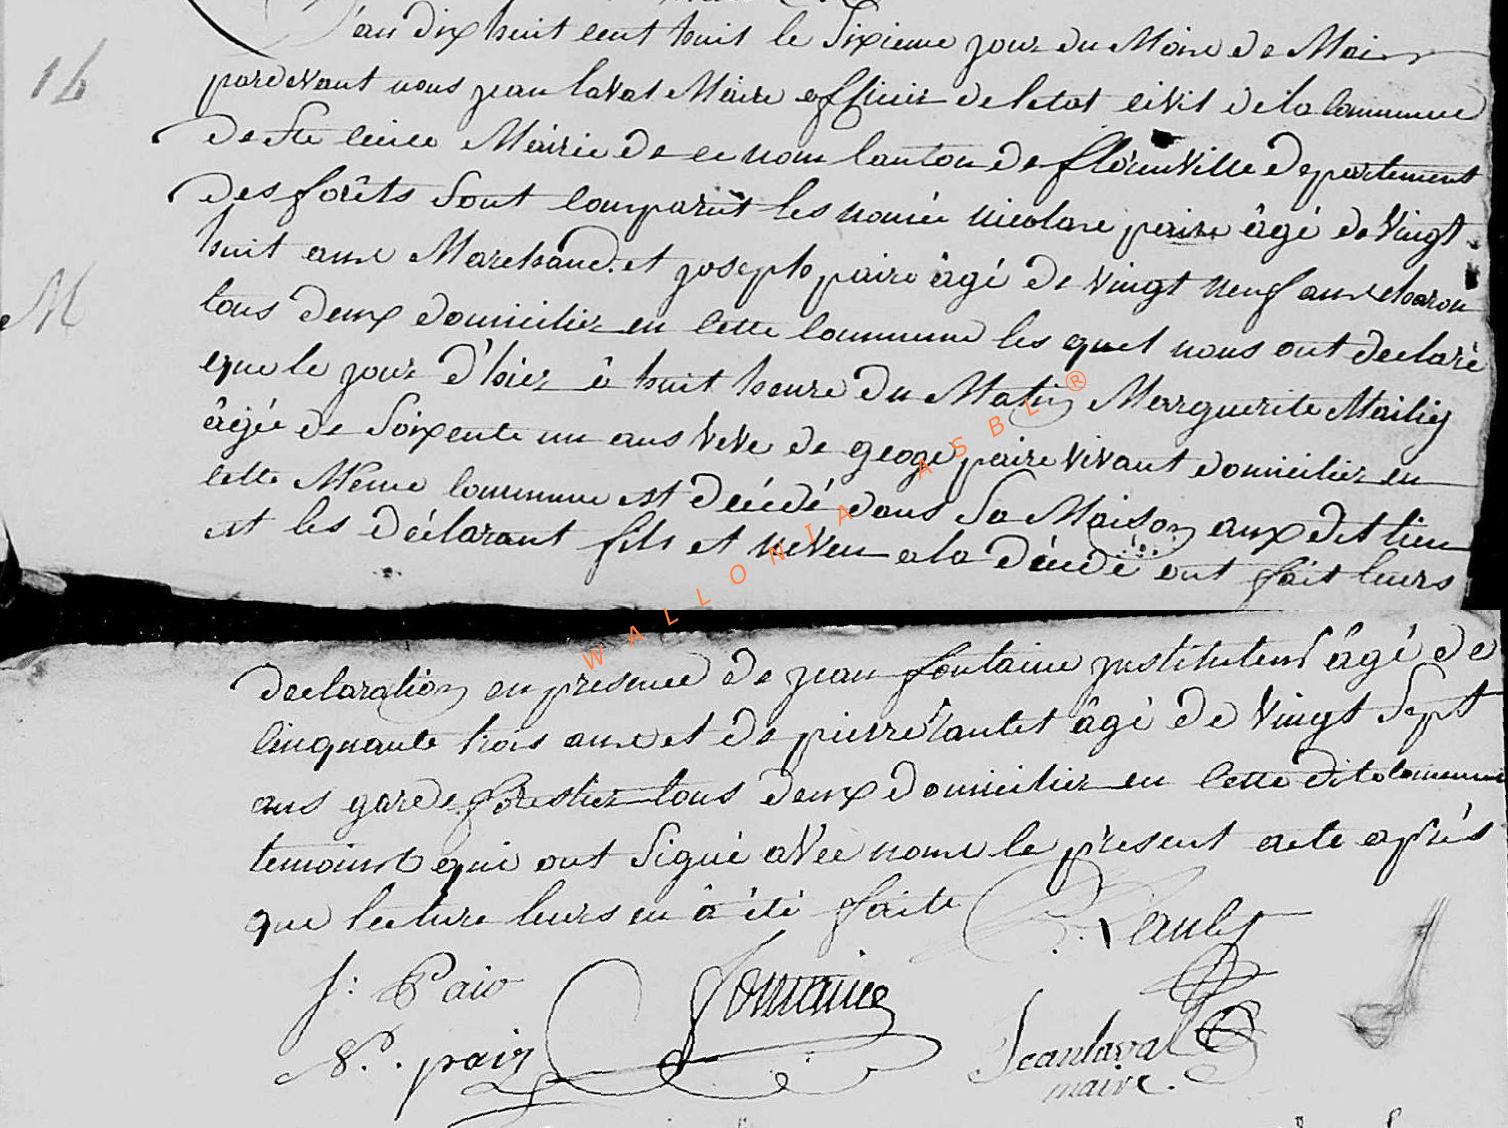 L'an dix huit cent huit le sixieme jour du Mois de Mai
14
pardevant nous jean laval Maire officier de letat civil de la commune
de Ste cecile Mairie de ce nom canton de florenville departement
des forêts sont comparut les nomée nicolas paire âgé de vingt
huit ans Marchand et joseph paire âgé de vingt neuf ans charon
M
tous deux domicilier en cette commune les quel nous ont declaré
que le jour d'hier â huit heure du Matin Marguerite Mailig
âgée de soixente un ans veve de geoge paire vivant domicilier en
cette Même commune est décédé dans sa Maison aux dit lieu
et les déclarant fils et neveu a la décédé ont fait leurs
WALLONIA ASBL ®
declaration en presence de jean fontaine justituteur âgé de
cinquante trois ans et de pierre lautet âgé de vingt sept
ans garde forestier tous deux domicilier en cette dite commune
temoins qui ont signé avec nous le present acte aprés
que lecture leurs en â été faite
J: Paio fontaine
N. pair Jean laval
maire.